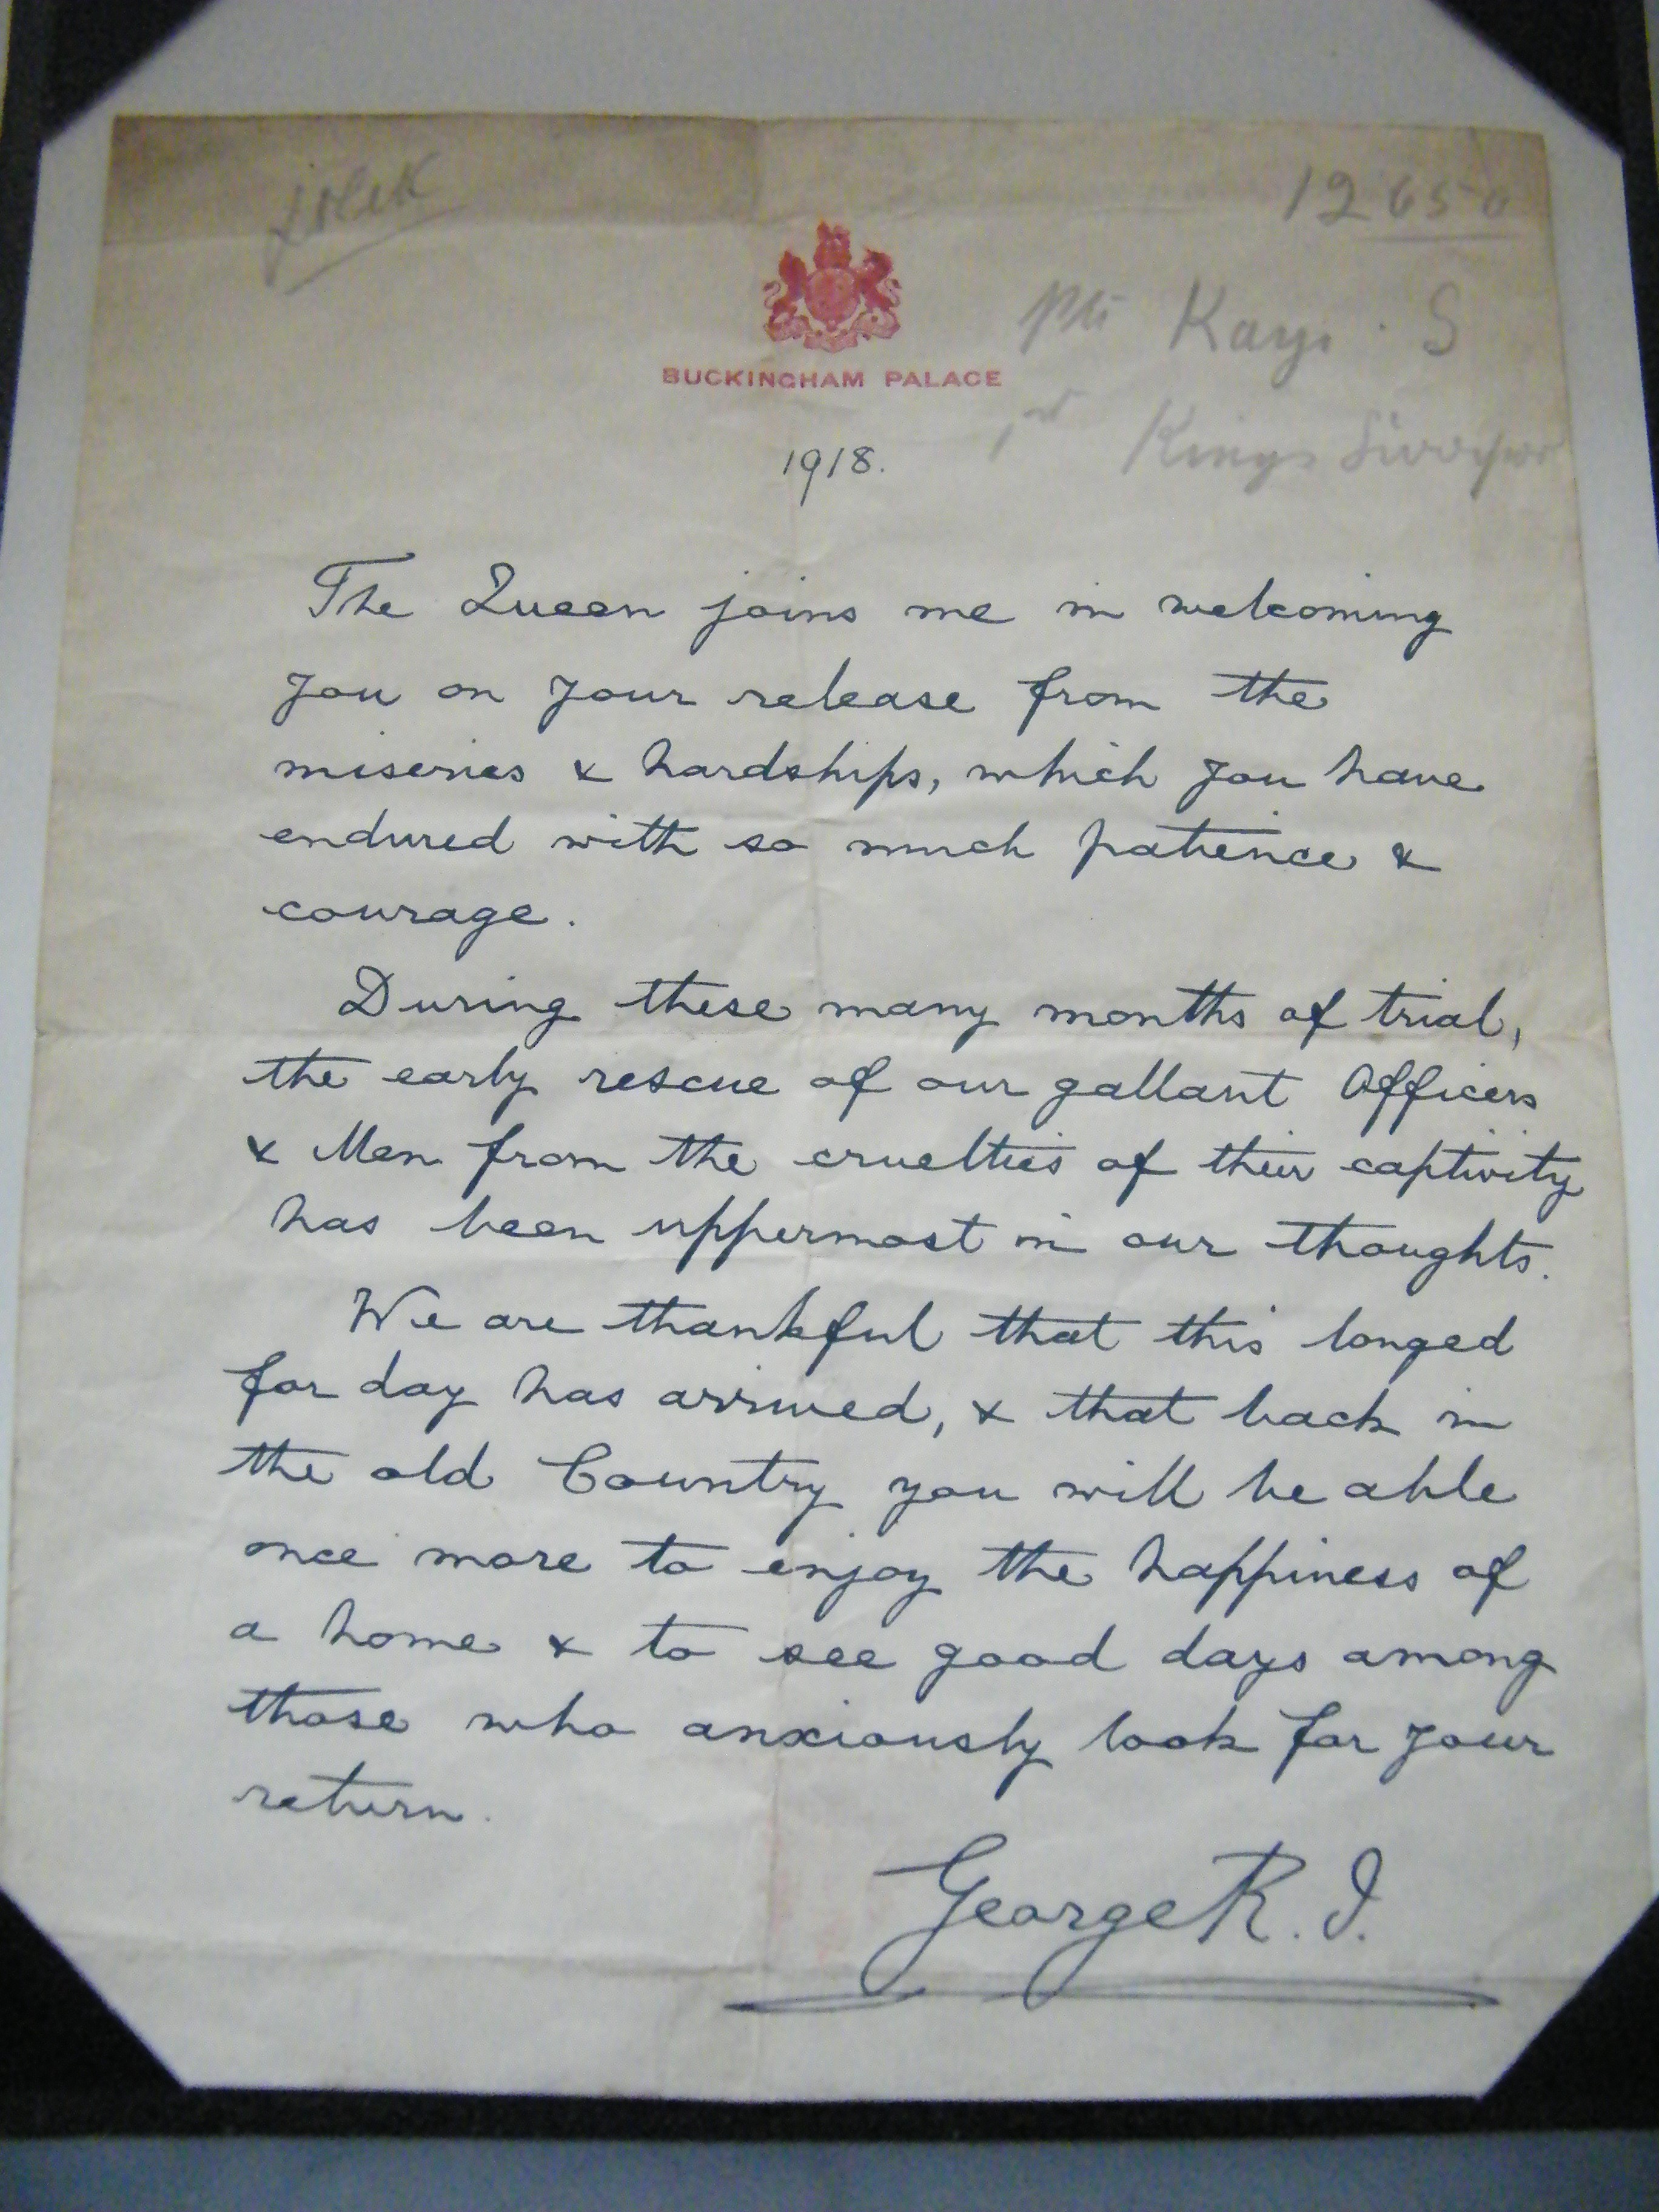 12650
Pte Kay. S
BUCKINGHAM PALACE
1st Kings
1918.
The Queen joins me in welcoming
you on your release from the
miseries & hardships, which you have
endured with so much patience &
courage.
During these many months of trial,
the early rescue of our gallant Officers
& Men from the cruelties of their captivity
has been uppermost in our thoughts.
We are thankful that this longed
for day has arrived, & that back in
the old Country you will be able
once more to enjoy the happiness of
a home & to see good days among
those who anxiously look for your
return.
George R. I.